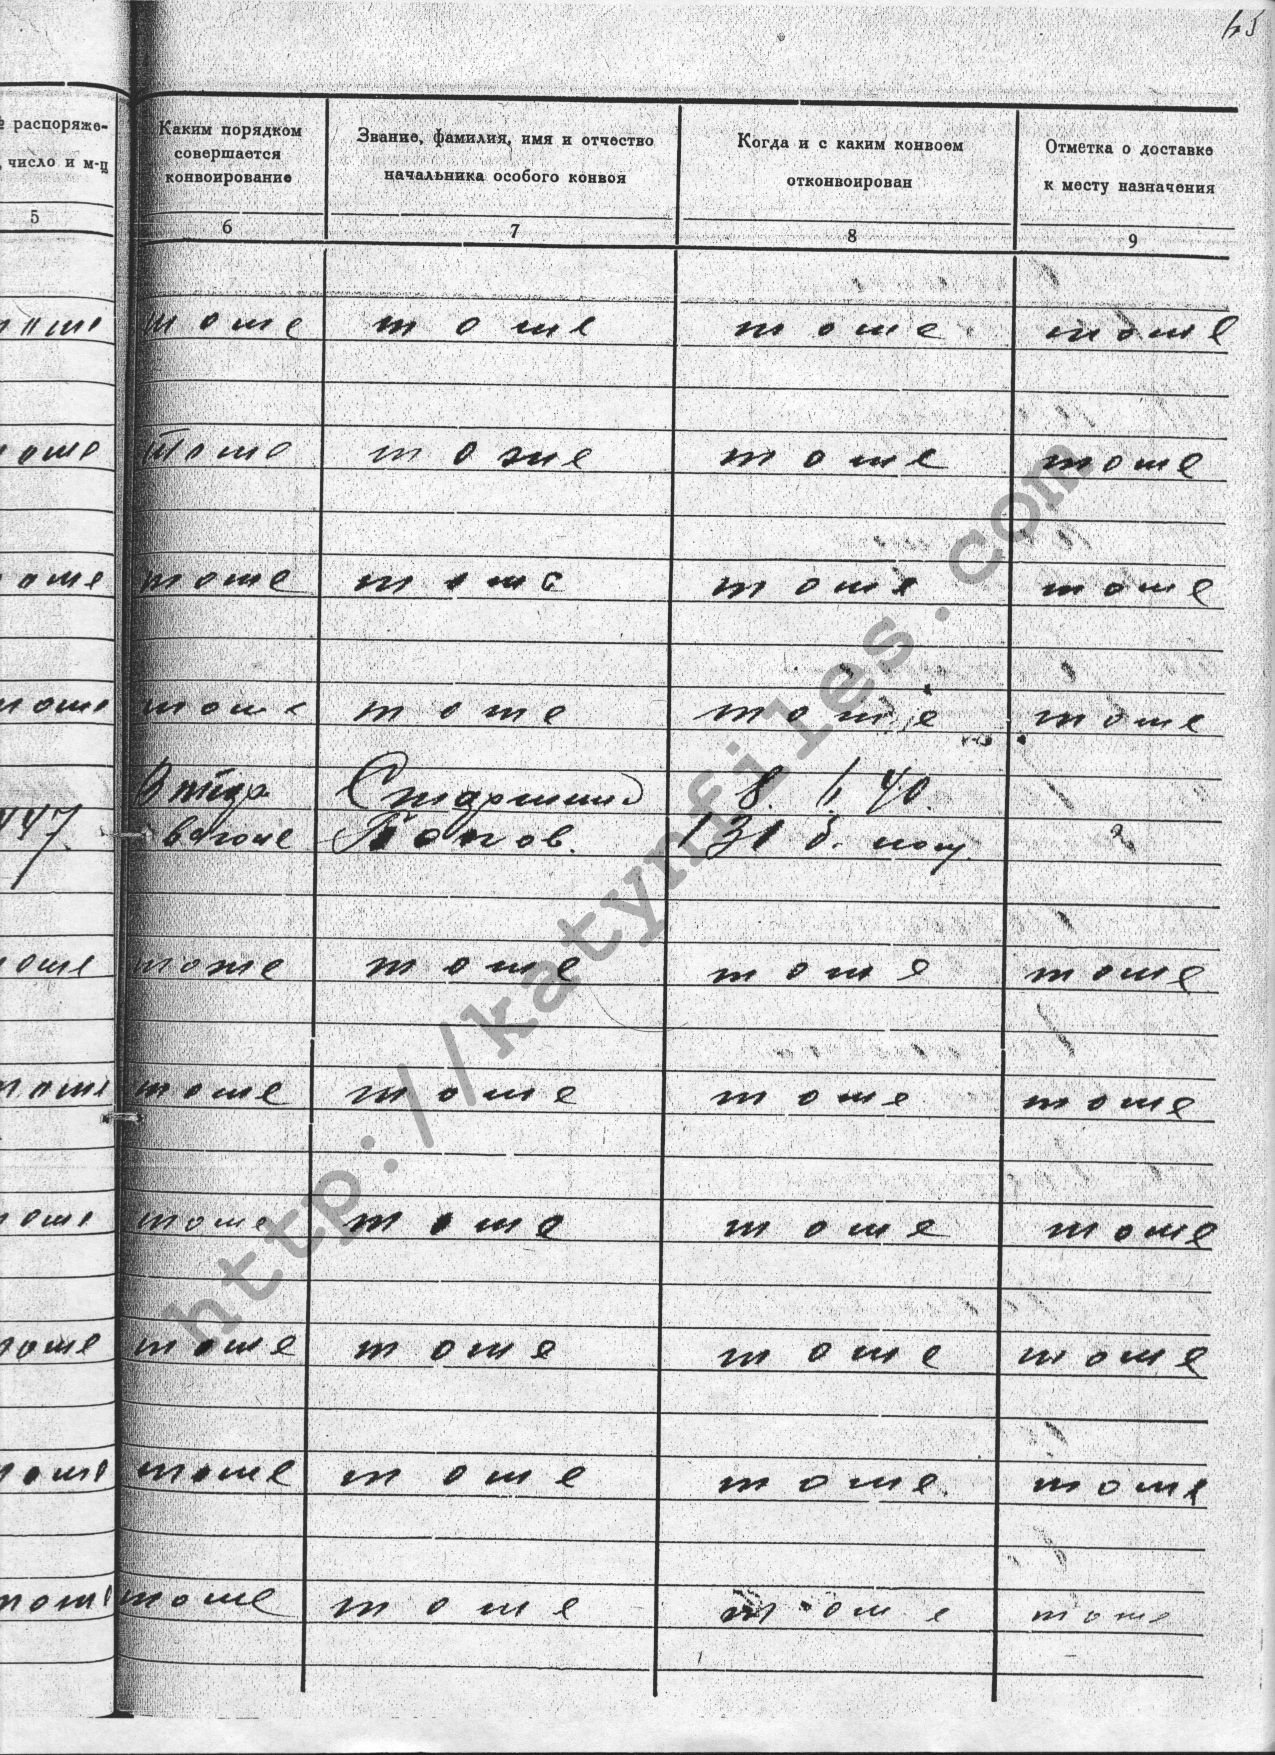 № распоряже-
число и м-ц
Каким порядком
совершается
конвоирование
Звание, фамилия, имя и отчество
начальника особого конвоя
Когда и с каким конвоем
отконвоирован
Отметка о доставке
к месту назначения
5 6 7 8 9
тоже тоже тоже тоже тоже
тоже тоже тоже тоже тоже
тоже тоже тоже тоже тоже
тоже тоже тоже тоже тоже
Старшина 8. 40.
447 вагоне Попов. 131 б.
тоже тоже тоже тоже тоже
тоже тоже тоже тоже тоже
тоже тоже тоже тоже тоже
тоже тоже тоже тоже тоже
тоже тоже тоже тоже тоже
тоже тоже тоже тоже тоже
http://katynfiles.com